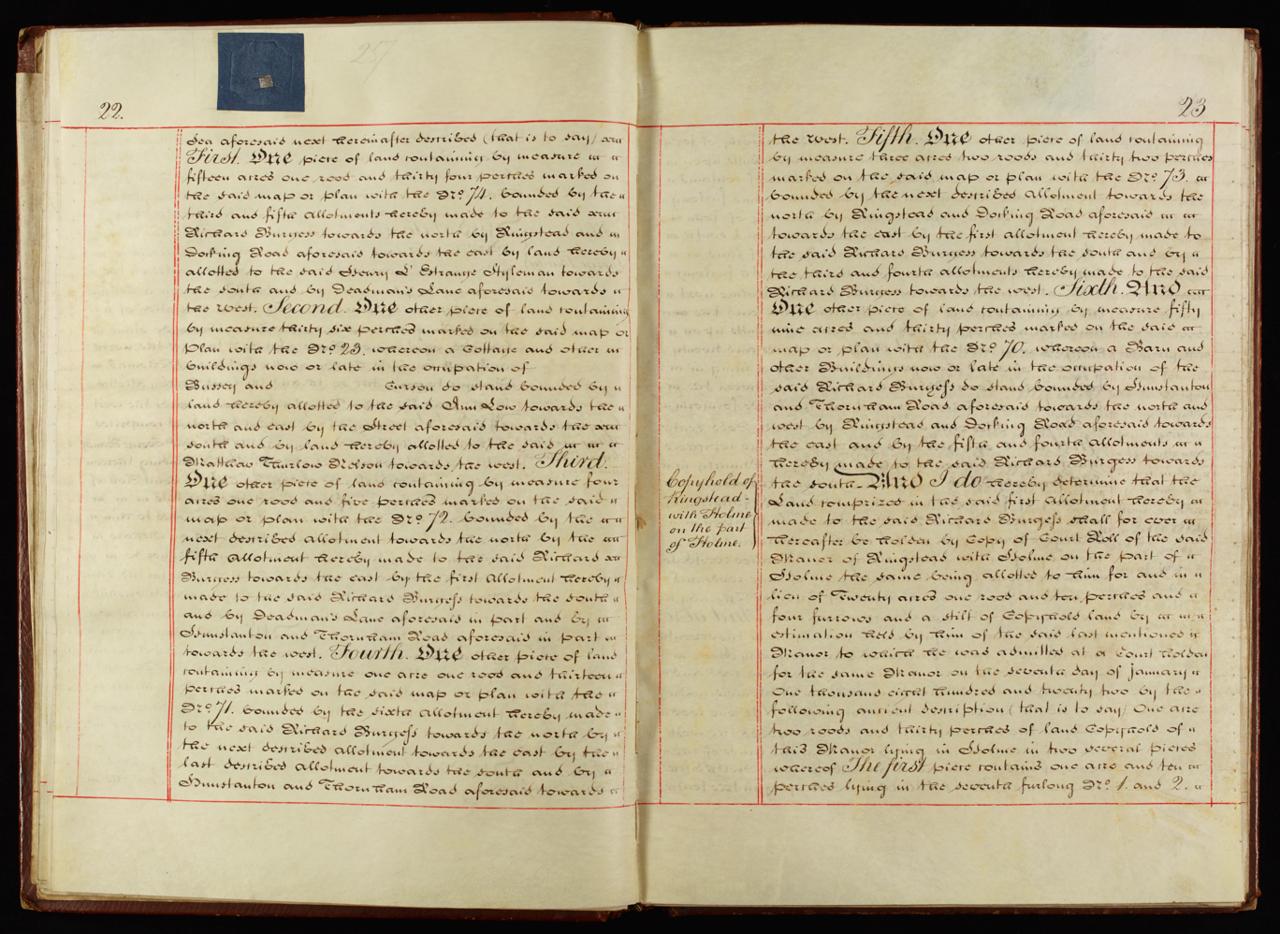 257
22.
Sea aforesaid next hereinafter described (that is to say)
First. One piece of land containing by measure
fifteen acres one rood and thirty four perches marked on
the said map or plan with the No. 74. bounded by the
third and fifth allotments hereby made to the said
Richard Burgess towards the north by Ringstead and
Docking Road aforesaid towards the east by land hereby
allotted to the said Henry L'Estrange Styleman towards
the south and by Deadman's Lane aforesaid towards
the west. Second. One other piece of land containing
by measure thirty six perches marked on the said map or
Plan with the No. 23. whereon a Cottage and other
buildings now or late in the occupation of
Bussey and Curson do stand bounded by
land hereby allotted to the said Ann Low towards the
north and east by the Street aforesaid towards the
south and by land hereby allotted to the said
Matthew Thurlow Nelson towards the west. Third.
One other piece of land containing by measure four
acres one rood and five perches marked on the said
map or plan with the No. 72. bounded by the
next described allotment towards the north by the
fifth Allotment hereby made to the said Richard
Burgess towards the east by the first Allotment hereby
made to the said Richard Burgess towards the south
and by Deadman's Lane aforesaid in part and by
Hunstanton and Thornham Road aforesaid in part
towards the west. Fourth. One other piece of land
containing by measure one acre one rood and thirteen
perches marked on the said map or plan with the
No. 71. bounded by the sixth Allotment hereby made
to the said Richard Burgess towards the north by
the next described allotment towards the east by the
last described allotment towards the south and by
Hunstanton and Thornham Road aforesaid towards
23
the west. Fifth. One other piece of land containing
by measure three acres two roods and thirty two perches
marked on the said map or plan with the No. 73.
bounded by the next described Allotment towards the
north by Ringstead and Docking Road aforesaid
towards the east by the first allotment hereby made to
the said Richard Burgess towards the south and by
the third and fourth allotments hereby made to the said
Richard Burgess towards the west. Sixth. And
One other piece of land containing by measure fifty
nine acres and thirty perches marked on the said
map or plan with the No. 70. whereon a Barn and
other Buildings now or late in the occupation of the
said Richard Burgess do stand bounded by Hunstanton
and Thornham Road aforesaid towards the north and
west by Ringstead and Docking Road aforesaid towards
the east and by the fifth and fourth Allotments
hereby made to the said Richard Burgess towards
the south. And I do hereby determine that the
Land comprized in the said first Allotment hereby
made to the said Richard Burgess shall for ever
hereafter be holden by Copy of Court Roll of the said
Manor of Ringstead with Holme on the part of
Holme the same being allotted to him for and in
lieu of Twenty acres one rood and ten perches and
four furrows and a stilt of Copyhold land by
estimation held by him of the said last mentioned
Manor to which he was admitted at a Court holden
for the same Manor on the seventh day of January
One thousand eight hundred and twenty two by the
following ancient description (that is to say) One acre
two roods and thirty perches of land Copyhold of
this Manor lying in Holme in two several pieces
whereof The first piece contains one acre and ten
perches lying in the seventh furlong No. 1. and 2.
Copyhold of
Ringstead
with Holme
on the part
of Holme.